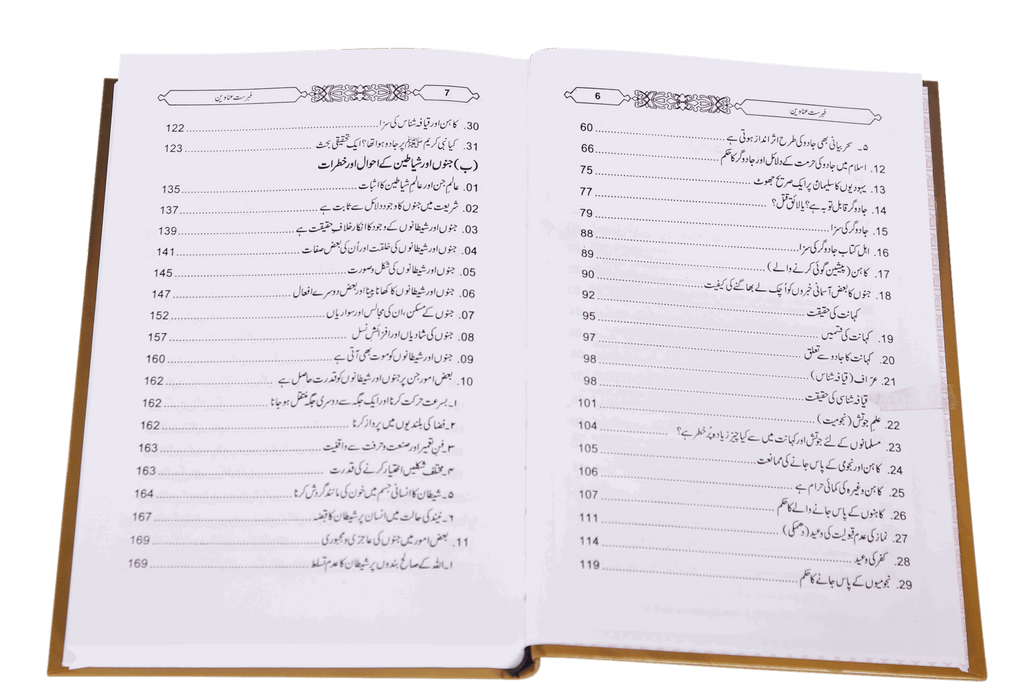 6 فہرست عناوین
۵۔ سحر بیانی بھی جادو کی طرح اثر انداز ہوتی ہے 60
12. اسلام میں جادو کی حرمت کے دلائل اور جادوگر کا حکم 66
13. یہودیوں کا سلیمانؑ پر ایک صریح جھوٹ 75
14. جادوگر قابل توبہ ہے؟ یا لائق قتل؟ 77
15. جادوگر کی سزا 79
16. اہل کتاب جادوگر کی سزا 88
17. کاہن (پیشین گوئی کرنے والے) 89
18. جنوں کا بعض آسمانی خبروں کو اُچک لے بھاگنے کی کیفیت 90
کہانت کی حقیقت 92
19. کہانت کی قسمیں 95
20. کہانت کا جادو سے تعلق 97
21. عرّاف (قیافہ شناس) 98
قیافہ شناسی کی حقیقت 98
22. علم جوتش (نجومیت) 101
23. مسلمانوں کے لئے جوتش اور کہانت میں سے کیا چیز زیادہ پُر خطر ہے؟ 104
24. کاہن اور نجومی کے پاس جانے کی ممانعت 105
25. کاہن وغیرہ کی کمائی حرام ہے 106
26. کاہنوں کے پاس جانے والے کا حکم 107
27. نماز کی عدم قبولیت کی وعید (دھمکی) 111
28. کفر کی وعید 114
29. نجومیوں کے پاس جانے کا حکم 119
7 فہرست عناوین
30. کاہن اور قیافہ شناس کی سزا 122
31. کیا نبی کریم ﷺ پر جادو ہوا تھا؟ ایک تحقیقی بحث 123
(ب) جنوں اور شیاطین کے احوال اور خطرات
01. عالمِ جن اور عالمِ شیاطین کا اثبات 135
02. شریعت میں جنوں کا وجود دلائل سے ثابت ہے 137
03. جنوں اور شیطانوں کے وجود کا انکار خلافِ حقیقت ہے 139
04. جنوں اور شیطانوں کی خلقت اور اُن کی بعض صفات 141
05. جنوں اور شیطانوں کی شکل و صورت 145
06. جنوں اور شیطانوں کا کھانا پینا اور بعض دوسرے افعال 147
07. جنوں کے مسکن، ان کی مجالس اور سواریاں 152
08. جنوں کی شادیاں اور افزائش نسل 157
09. جنوں اور شیطانوں کو موت بھی آتی ہے 160
10. بعض امور جن پر جنوں اور شیطانوں کو قدرت حاصل ہے 162
۱۔ بسرعت حرکت کرنا اور ایک جگہ سے دوسری جگہ منتقل ہو جانا 162
۲۔ فضا کی بلندیوں میں پرواز کرنا 162
۳۔ فنِ تعمیر اور صنعت و حرفت سے واقفیت 163
۴۔ مختلف شکلیں اختیار کرنے کی قدرت 163
۵۔ شیطان کا انسانی جسم میں خون کی مانند گردش کرنا 164
۶۔ نیند کی حالت میں انسان پر شیطان کا قبضہ 167
11. بعض امور میں جنوں کی عاجزی و مجبوری 169
۱۔ اللہ کے صالح بندوں پر شیطان کا عدم تسلط 169